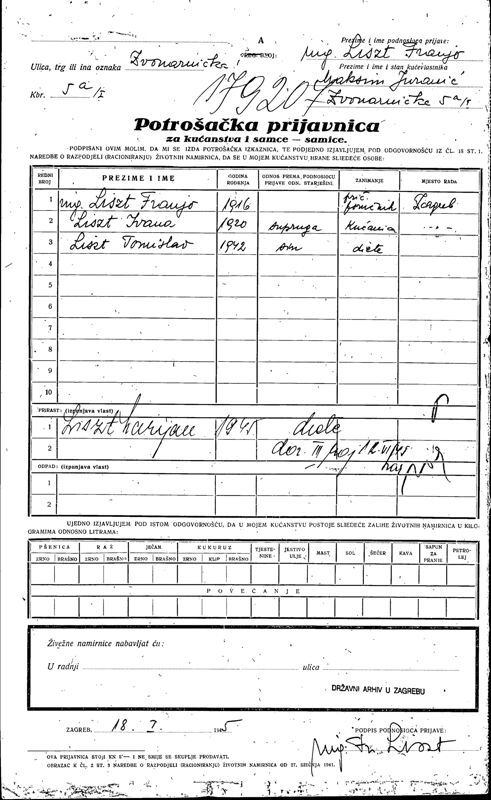 A
Prezime i ime podnosioca prijave:
Ulica, trg ili ina oznaka Zvonarnička
ing. Liszt Franjo
Prezime i ime i stan kućevlastnika
Maksim Juranić
Kbr. 5a/I
17920
Zvonarnička 5a/I
Potrošačka prijavnica
za kućanstva i samce — samice.
POTPISANI OVIM MOLIM, DA MI SE IZDA POTROŠAČKA IZKAZNICA, TE POTJEDNO IZJAVLJUJEM, POD ODGOVORNOŠĆU IZ ČL. 18 ST. 1.
NAREDBE O RAZPODJELI (RACIONIRANJU) ŽIVOTNIH NAMIRNICA, DA SE U MOJEM KUĆANSTVU HRANE SLIJEDEĆE OSOBE:
REDNI BROJ PREZIME I IME GODINA ROĐENJA ODNOS PREMA PODNOSIOCU PRIJAVE ODN. STARJEŠINI. ZANIMANJE MJESTO RADA
1 ing. Liszt Franjo 1916 Zagreb
2 Liszt Ivana 1920 supruga kućanica -"-
3 Liszt Tomislav 1942 sin diete
4
5
6
7
8
9
10
PRIRAST: (izpunjava vlast)
1 Liszt Marijan 1945 diete
2 12.VI/45
ODPAD: (izpunjava vlast)
1
2
UJEDNO IZJAVLJUJEM POD ISTOM ODGOVORNOŠĆU, DA U MOJEM KUĆANSTVU POSTOJE SLIEDEĆE ZALIHE ŽIVOTNIH NAMIRNICA U KILO-
GRAMIMA ODNOSNO LITRAMA:
PŠENICA RAŽ JEČAM KUKURUZ TJESTE-NINE JESTIVO ULJE MAST SOL ŠEĆER KAVA SAPUN ZA PRANJE PETRO-LEJ
ZRNO BRAŠNO ZRNO BRAŠNO ZRNO BRAŠNO ZRNO KLIP BRAŠNO
POVEĆANJE
Živežne namirnice nabavljat ću:
U radnji ulica
DRŽAVNI ARHIV U ZAGREBU
ZAGREB, 18. I. 1945
POTPIS PODNOSIOCA PRIJAVE:
ing. Fr. Liszt
OVA PRIJAVNICA STOJI KN I NE SMIJE SE SKUPLJE PRODAVATI.
OBRAZAC K ČL. 2 ST. 3 NAREDBE O RAZPODJELI (RACIONIRANJU) ŽIVOTNIH NAMIRNICA OD 27. SIEČNJA 1941.